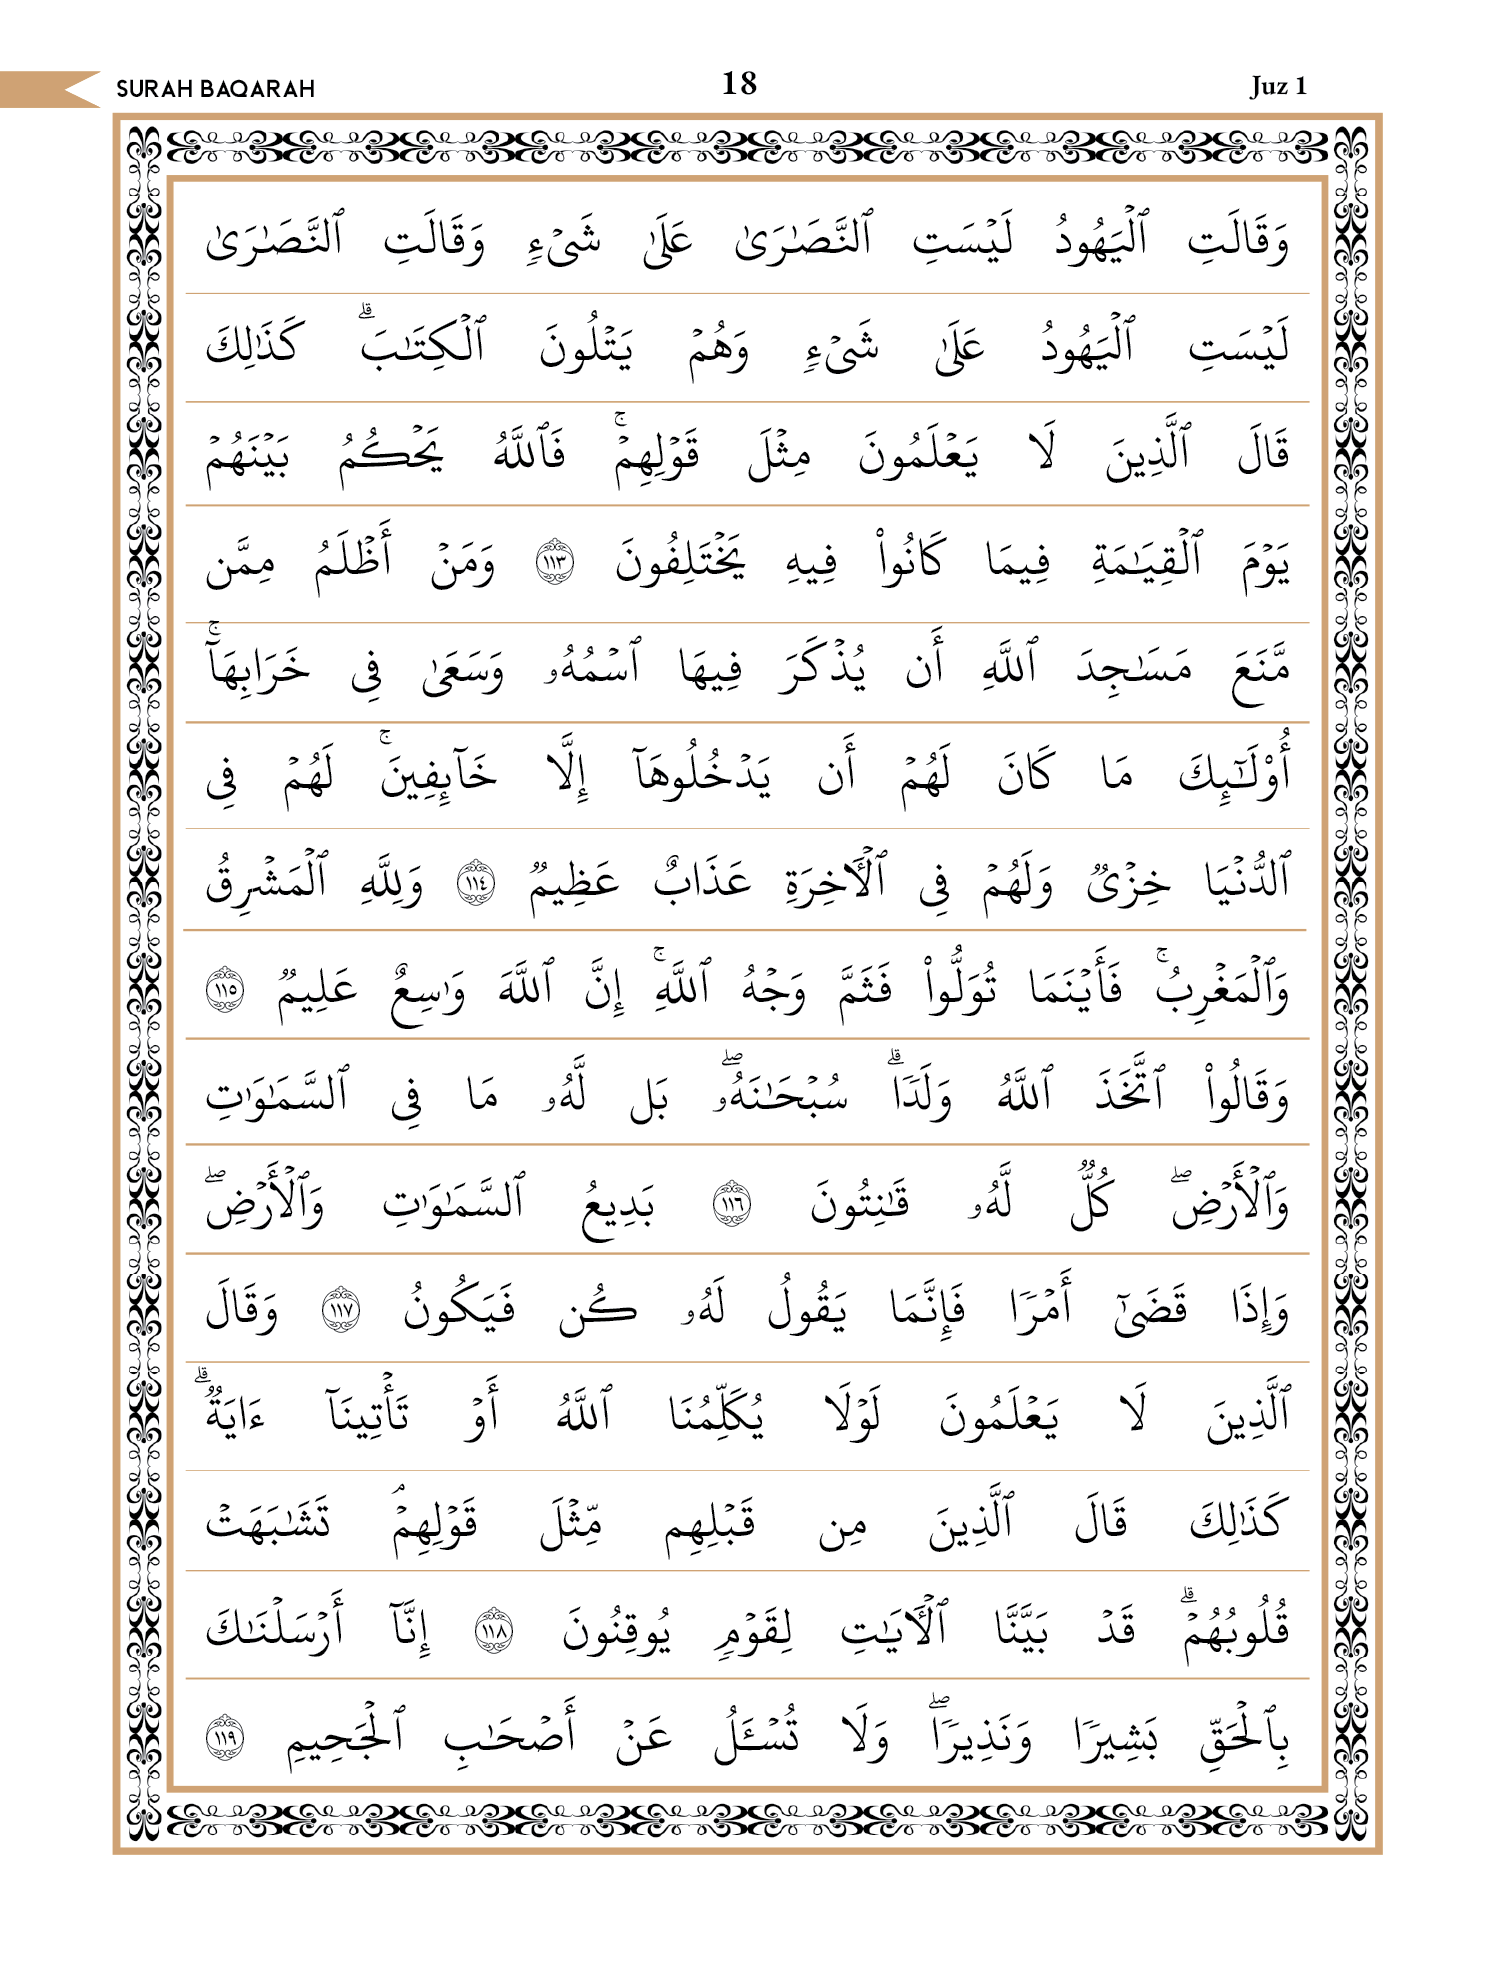 SURAH BAQARAH 18 Juz 1
وَقَالَتِ ٱلْيَهُودُ لَيْسَتِ ٱلنَّصَـٰرَىٰ عَلَىٰ شَىْءٍ وَقَالَتِ ٱلنَّصَـٰرَىٰ
لَيْسَتِ ٱلْيَهُودُ عَلَىٰ شَىْءٍ وَهُمْ يَتْلُونَ ٱلْكِتَـٰبَ ۗ كَذَٰلِكَ
قَالَ ٱلَّذِينَ لَا يَعْلَمُونَ مِثْلَ قَوْلِهِمْ ۚ فَٱللَّهُ يَحْكُمُ بَيْنَهُمْ
يَوْمَ ٱلْقِيَـٰمَةِ فِيمَا كَانُوا۟ فِيهِ يَخْتَلِفُونَ ١١٣ وَمَنْ أَظْلَمُ مِمَّن
مَّنَعَ مَسَـٰجِدَ ٱللَّهِ أَن يُذْكَرَ فِيهَا ٱسْمُهُۥ وَسَعَىٰ فِى خَرَابِهَآ ۚ
أُو۟لَـٰٓئِكَ مَا كَانَ لَهُمْ أَن يَدْخُلُوهَآ إِلَّا خَآئِفِينَ ۚ لَهُمْ فِى
ٱلدُّنْيَا خِزْىٌ وَلَهُمْ فِى ٱلْـَٔاخِرَةِ عَذَابٌ عَظِيمٌ ١١٤ وَلِلَّهِ ٱلْمَشْرِقُ
وَٱلْمَغْرِبُ ۚ فَأَيْنَمَا تُوَلُّوا۟ فَثَمَّ وَجْهُ ٱللَّهِ ۚ إِنَّ ٱللَّهَ وَٰسِعٌ عَلِيمٌ ١١٥
وَقَالُوا۟ ٱتَّخَذَ ٱللَّهُ وَلَدًا ۗ سُبْحَـٰنَهُۥ ۖ بَل لَّهُۥ مَا فِى ٱلسَّمَـٰوَٰتِ
وَٱلْأَرْضِ ۖ كُلٌّ لَّهُۥ قَـٰنِتُونَ ١١٦ بَدِيعُ ٱلسَّمَـٰوَٰتِ وَٱلْأَرْضِ ۖ
وَإِذَا قَضَىٰٓ أَمْرًا فَإِنَّمَا يَقُولُ لَهُۥ كُن فَيَكُونُ ١١٧ وَقَالَ
ٱلَّذِينَ لَا يَعْلَمُونَ لَوْلَا يُكَلِّمُنَا ٱللَّهُ أَوْ تَأْتِينَآ ءَايَةٌ ۗ
كَذَٰلِكَ قَالَ ٱلَّذِينَ مِن قَبْلِهِم مِّثْلَ قَوْلِهِمْ ۘ تَشَـٰبَهَتْ
قُلُوبُهُمْ ۗ قَدْ بَيَّنَّا ٱلْـَٔايَـٰتِ لِقَوْمٍ يُوقِنُونَ ١١٨ إِنَّآ أَرْسَلْنَـٰكَ
بِٱلْحَقِّ بَشِيرًا وَنَذِيرًا ۖ وَلَا تُسْـَٔلُ عَنْ أَصْحَـٰبِ ٱلْجَحِيمِ ١١٩